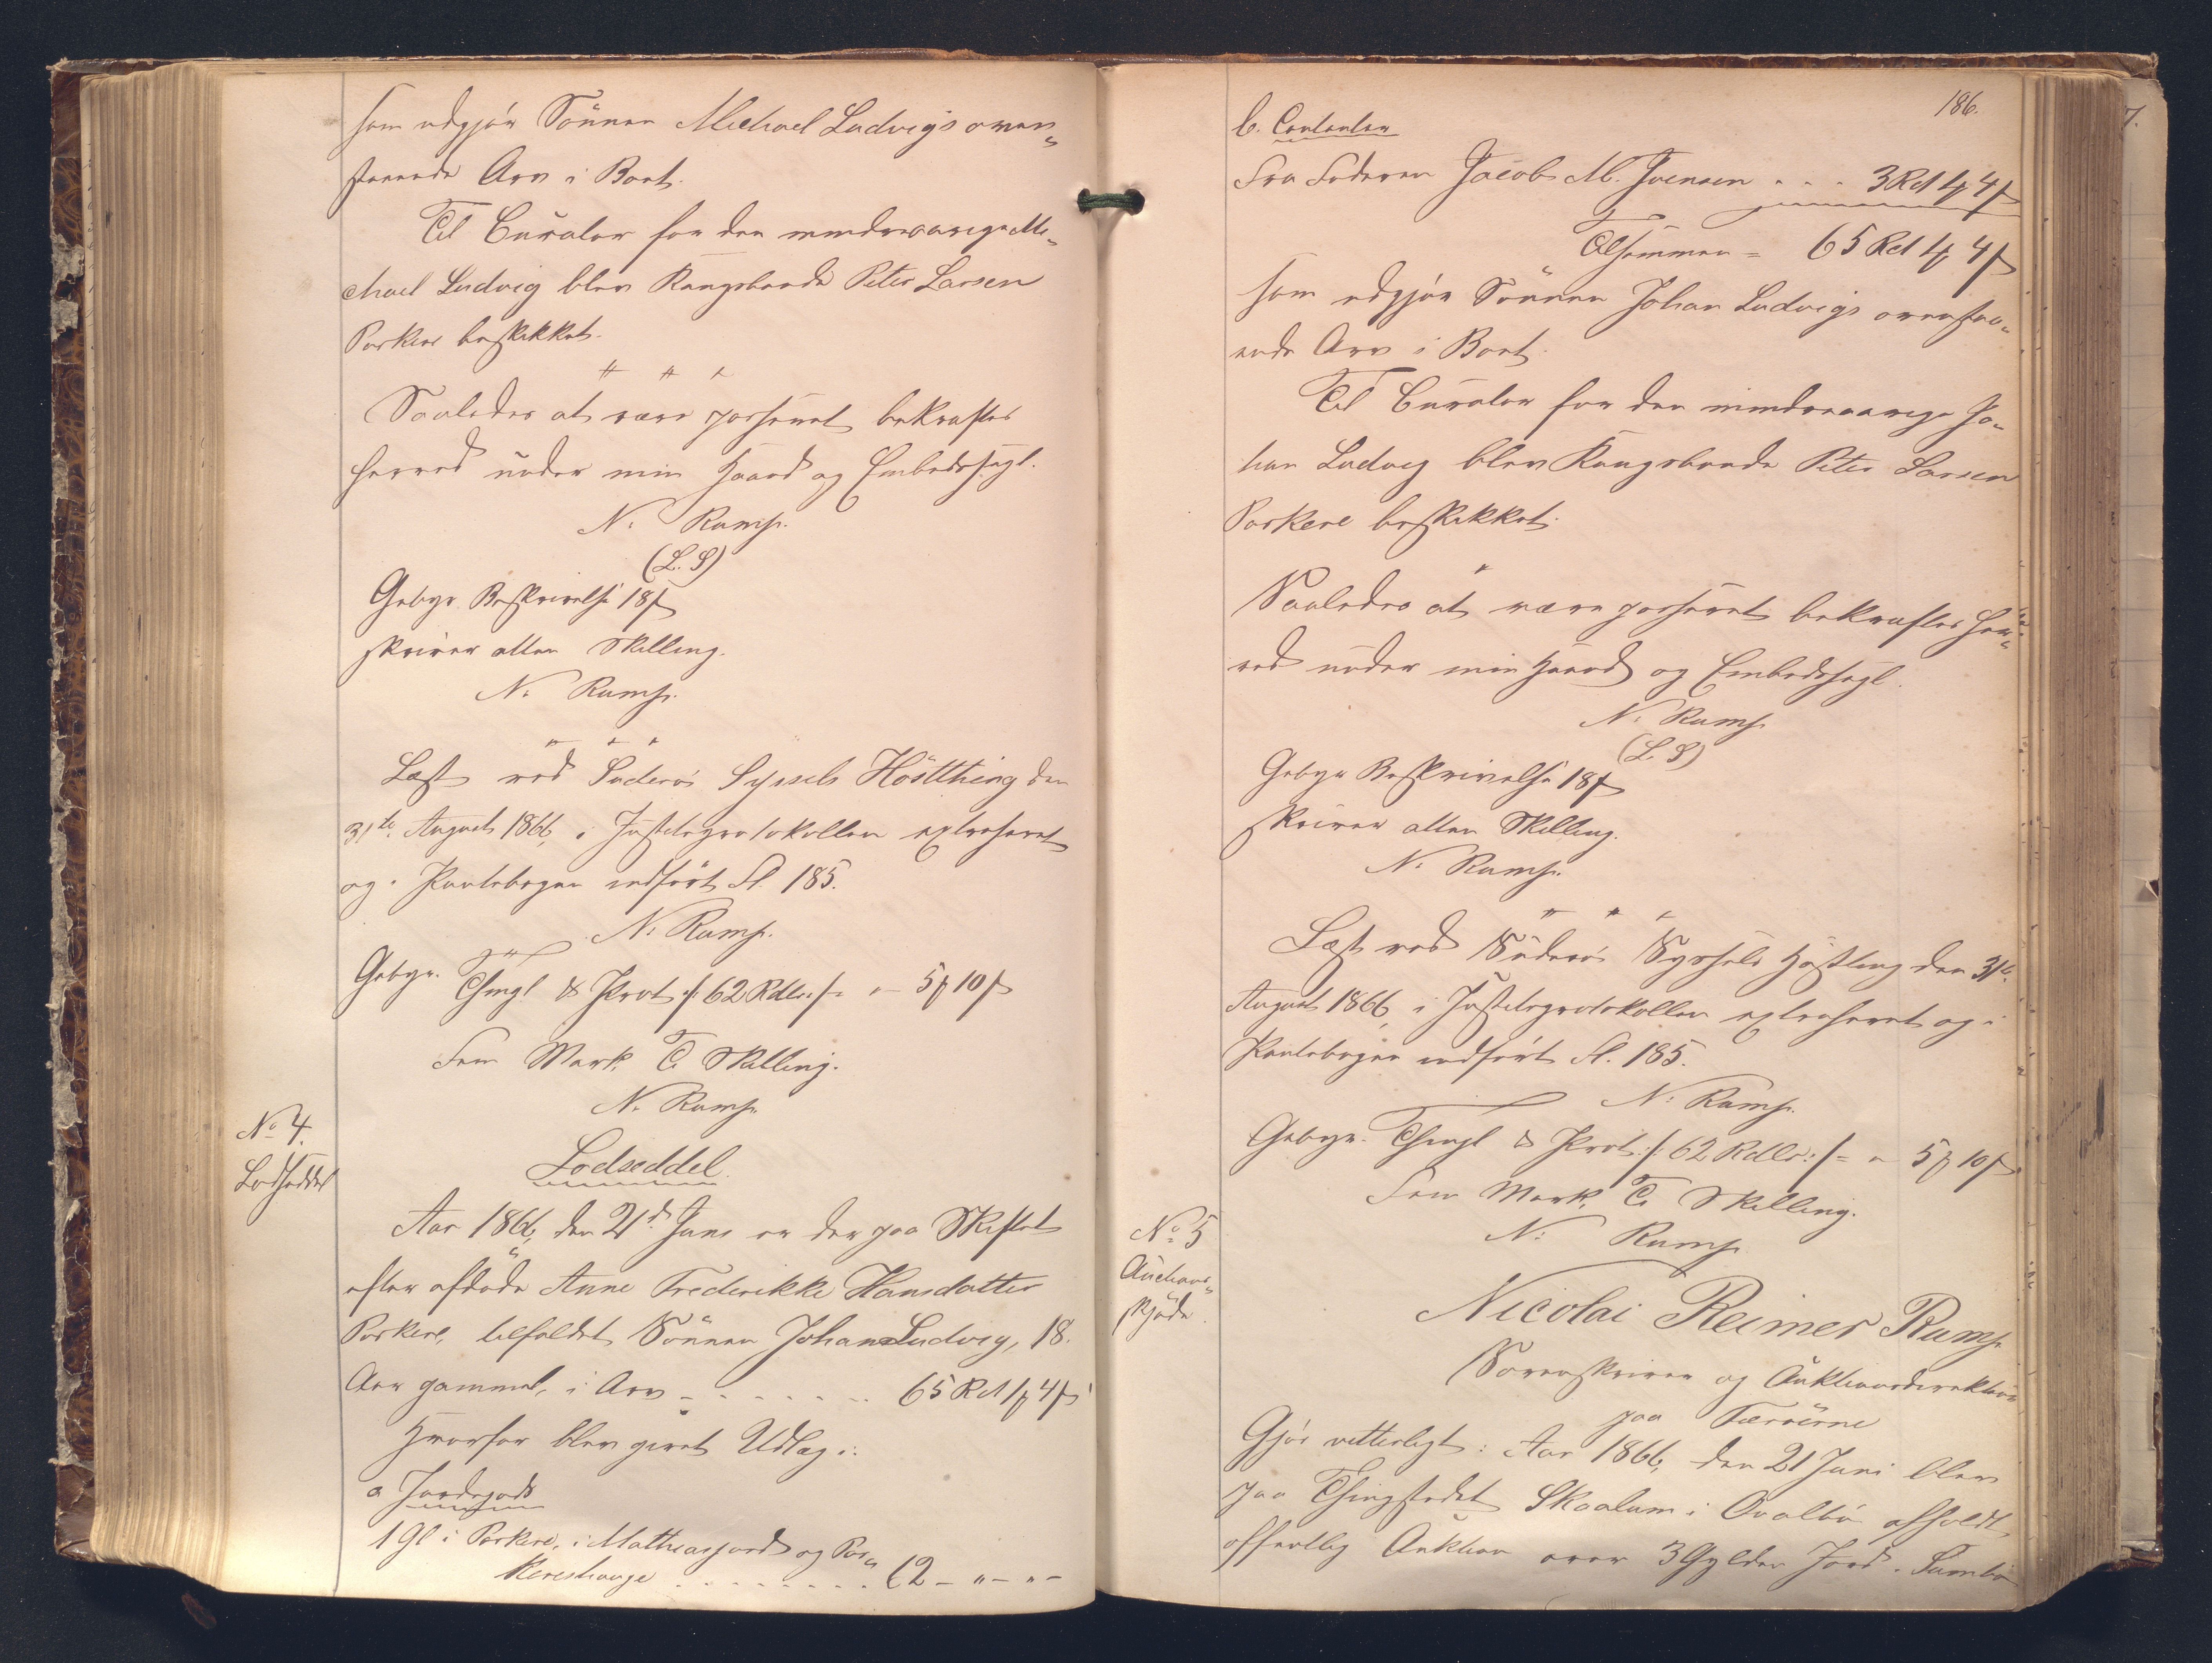 som udgjør Sönnen Michael Ludvigs oven„
staaende Arv i Boet.
Til Curator for den mindreaarige Mi„
chael Ludvig blev Kongsbonde Peter Larsen
Porkere beskikket.
Saaledes at være passeret bekræftes
herved under min Haand og Embedssegl.
N: Rump.
(L. S)
Gebyr. Beskrivelse 18 ſ
skriver atten Skilling.
N: Rump.
Læst ved Suderø Syssels Höstthing den
31te August 1866, i Justitsprotokollen extraheret
og i Pantebogen indført Fl. 185.
N: Rump.
Gebyr. Thingl & Prot. /: 62 Rdlr :/ = „ – 5 ƒ 10 ſ
Fem Mark Ti Skilling.
N. Rump.
No 4.
Lodseddel
Lodseddel.
Aar 1866, den 21d Juni er der paa Skiftet
efter afdøde Anne Frederikke Hansdatter
Porkere, tilfaldet Sönnen Johan Ludvig, 18.
Aar gammel, i Arv - - - - - - 65 Rd 1 ƒ 4 ſ
Hvorfor blev givet Udlæg i:
a Jordegods
1 Gl i Porkere, i Mathiasjord og Por„
kereshauge . . . . . . . . 62 – „ – „ –
186.
b. Contanter
Fra Faderen Jacob M. Joensen . . . 3 Rd 1 ƒ 4 ſ
Tilsammen = 65 Rd 1 ƒ 4 ſ
som udgjør Sönnen Johan Ludvigs ovenstaa„
ende Arv i Boet.
Til Curator for den mindreaarige Jo„
han Ludvig blev Kongsbonde Peter Larsen
Porkere beskikket.
Saaledes at være passeret bekræftes her„
ved under min Haand og Embedssegl.
N: Rump
(L. S)
Gebyr Beskrivelse 18 ſ
skriver atten Skilling.
N: Rump.
Læst ved Suderø Syssels Høstting den 31te
August 1866, i Justitsprotokollen extraheret og i
Pantebogen indført Fl. 185.
N: Rump.
Gebyr. Thingl & Prot. /: 62 Rdlr :/ = „ 5 ƒ 10 ſ
Fem Mark, Ti Skilling.
N: Rump
No 5
Auctions„
skjøde.
Nicolai Reimer Rump
Sorenskriver og Auktionsdirekteur
paa Færøerne
Gjør vitterligt: Aar 1866, den 21 Juni blev
paa Thingstedet Skaalum i Qvalbø afholdt
offentlig Auktion over 3 Gylden Jord i Sumbø